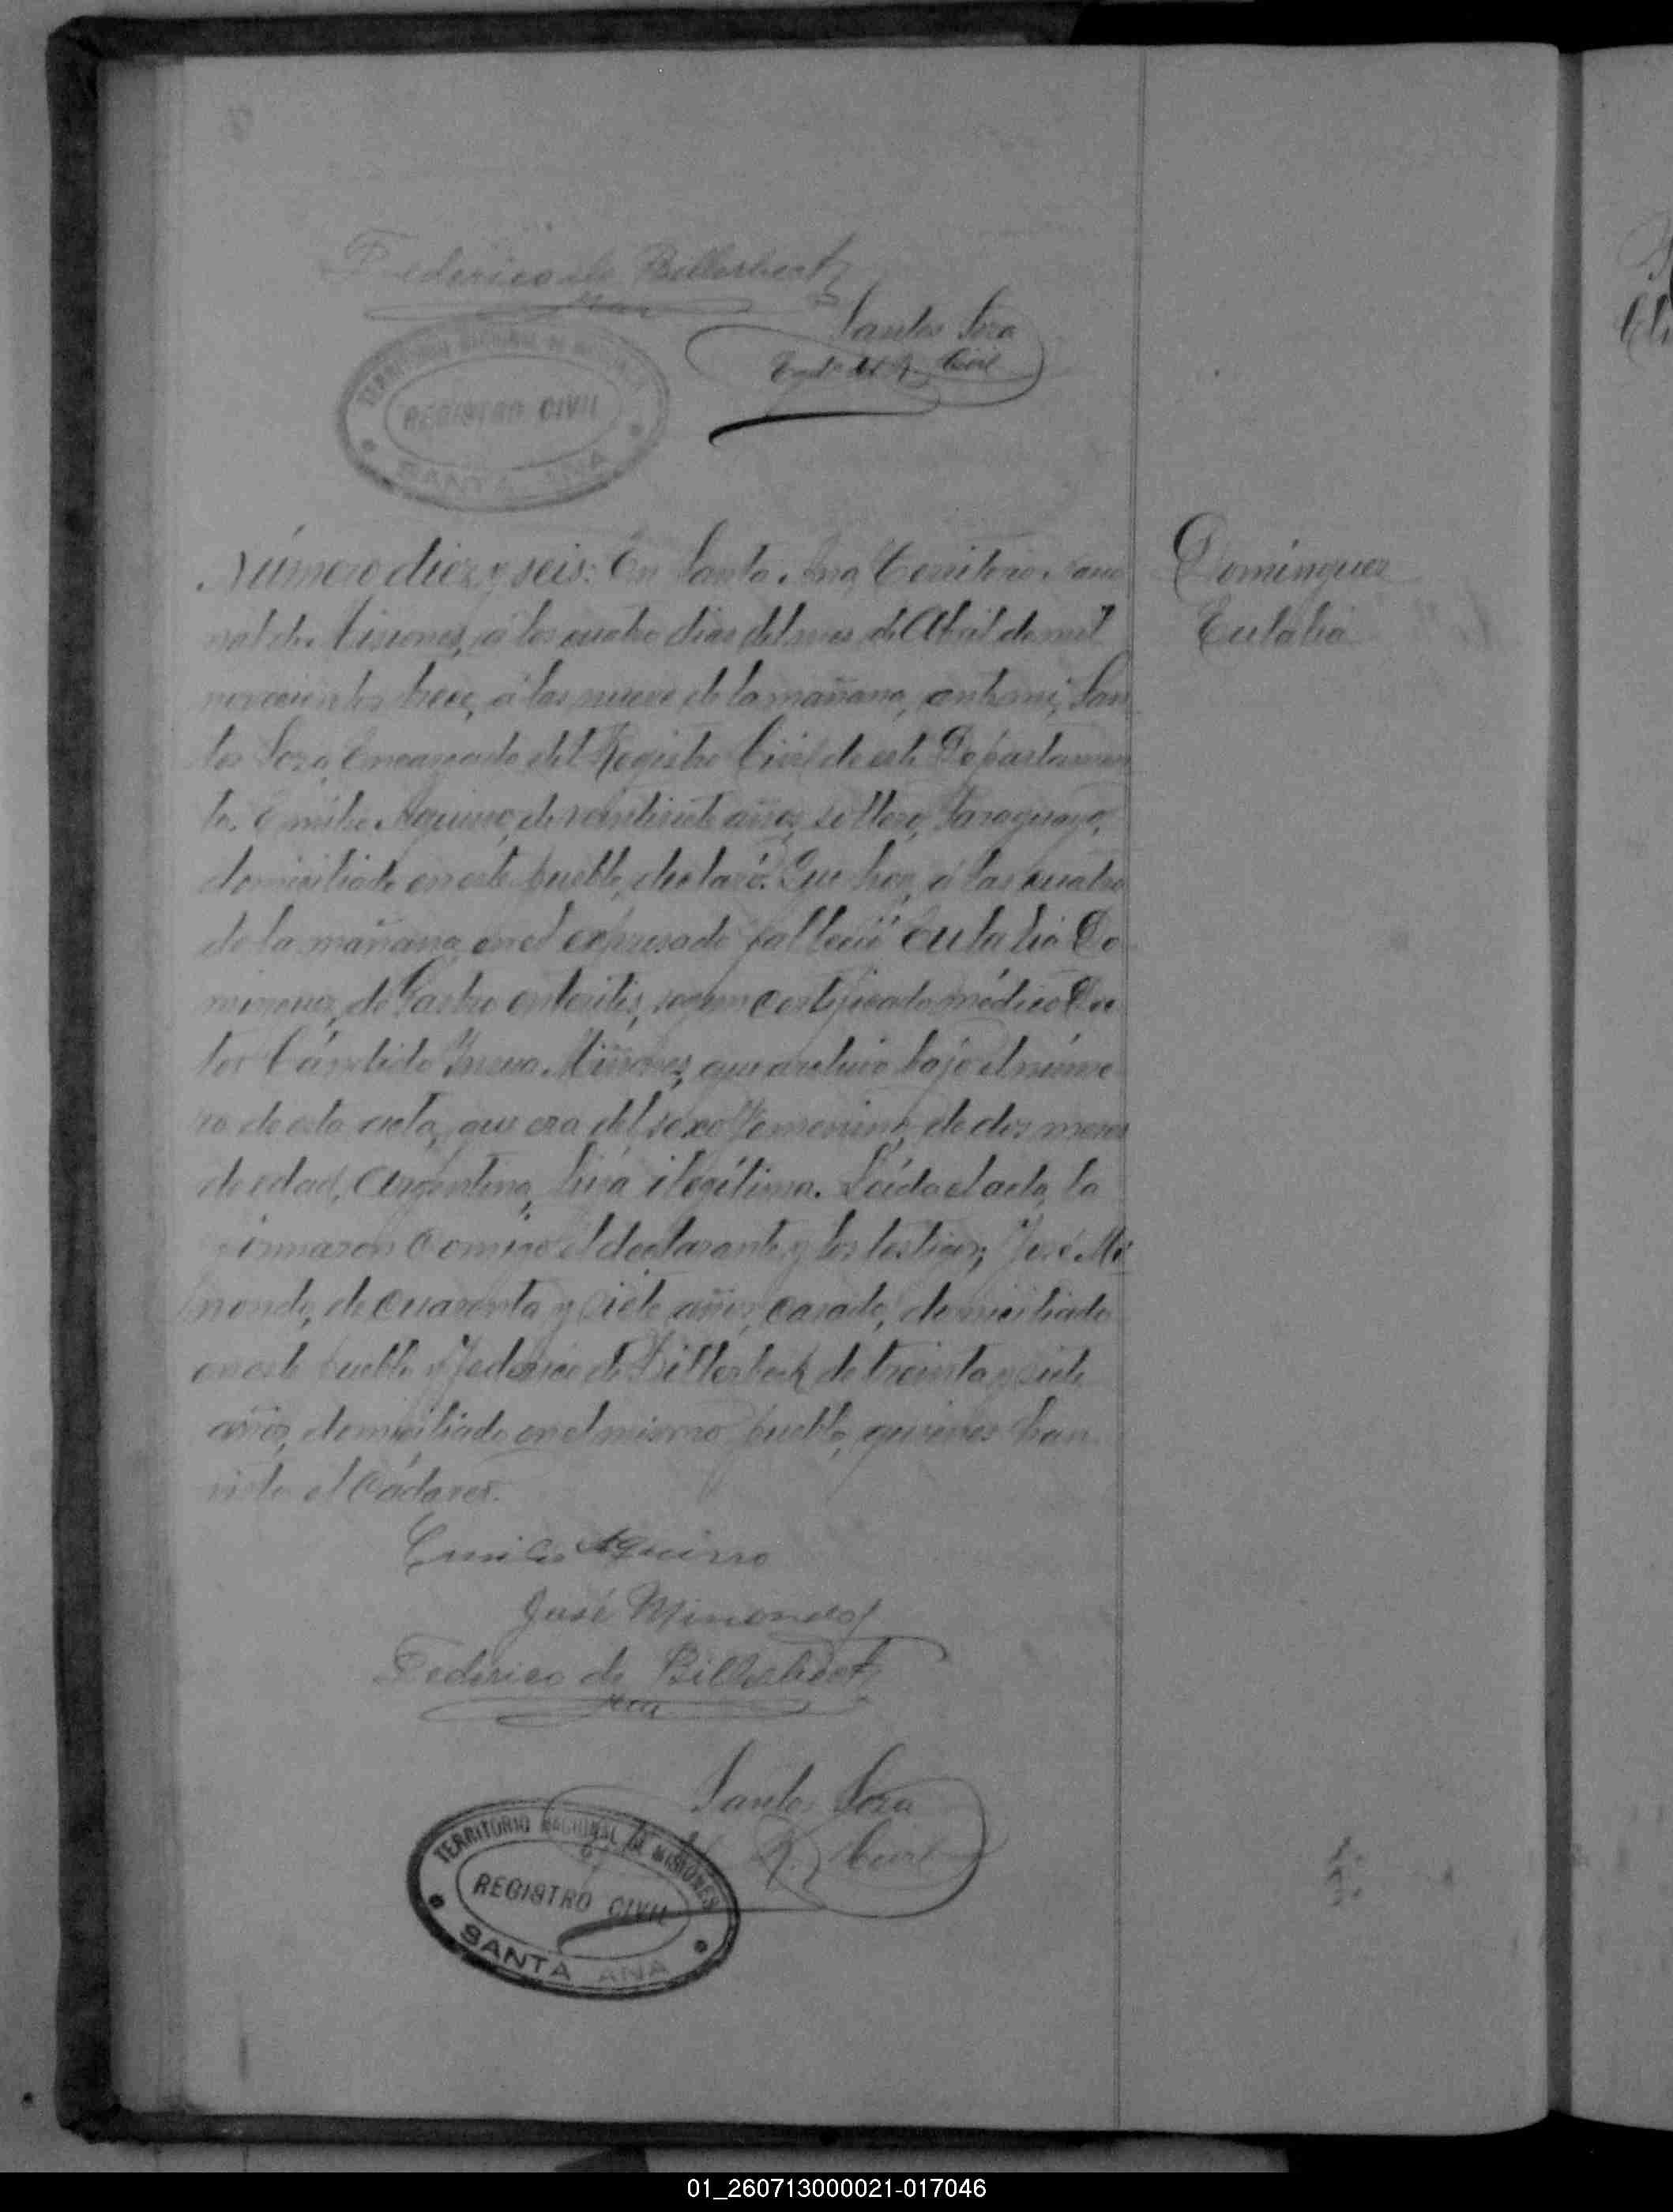 Federico de Billerbeck
Santos Soza
Encdo del R. Civil
TERRITORIO NACIONAL DE MISIONES
REGISTRO CIVIL
SANTA ANA
Número diez y seis: En Santa Ana, Territorio Nacio
nal de Misiones, á los cuatro dias del mes de Abril de mil
novecientos trece, á las nueve de la mañana, ante mi, San
tos Soza, Encargado del Registro Civil de este Departamen
to, Emilio Aquino, de veintisiete años, soltero, Paraguayo,
domiciliado en este pueblo, declaró: Que hoy, á las cuatro
de la mañana, en el expresado falleció Eulalia Do
minguez, de Gastro enteritis, segun certificado médico Doc
tor Cándido Miñones, que archivo bajo el núme
ro de esta acta, que era del sexo femenino, de dos meses
de edad, Argentina, hija ilegítima. Leída el acta, la
firmaron conmigo el declarante y los testigos, José Mi
nondo, de cuarenta y siete años, casado, domiciliado
en este pueblo y Federico de Billerbeck de treinta y siete
años, domiciliado en el mismo pueblo, quienes han
visto el cádaver.
Dominguez
Eulalia
Emilio Aquino
José Minondo
Federico de Billerbeck
Santos Soza
R. Civil
TERRITORIO NACIONAL DE MISIONES
REGISTRO CIVIL
SANTA ANA
01_260713000021-017046